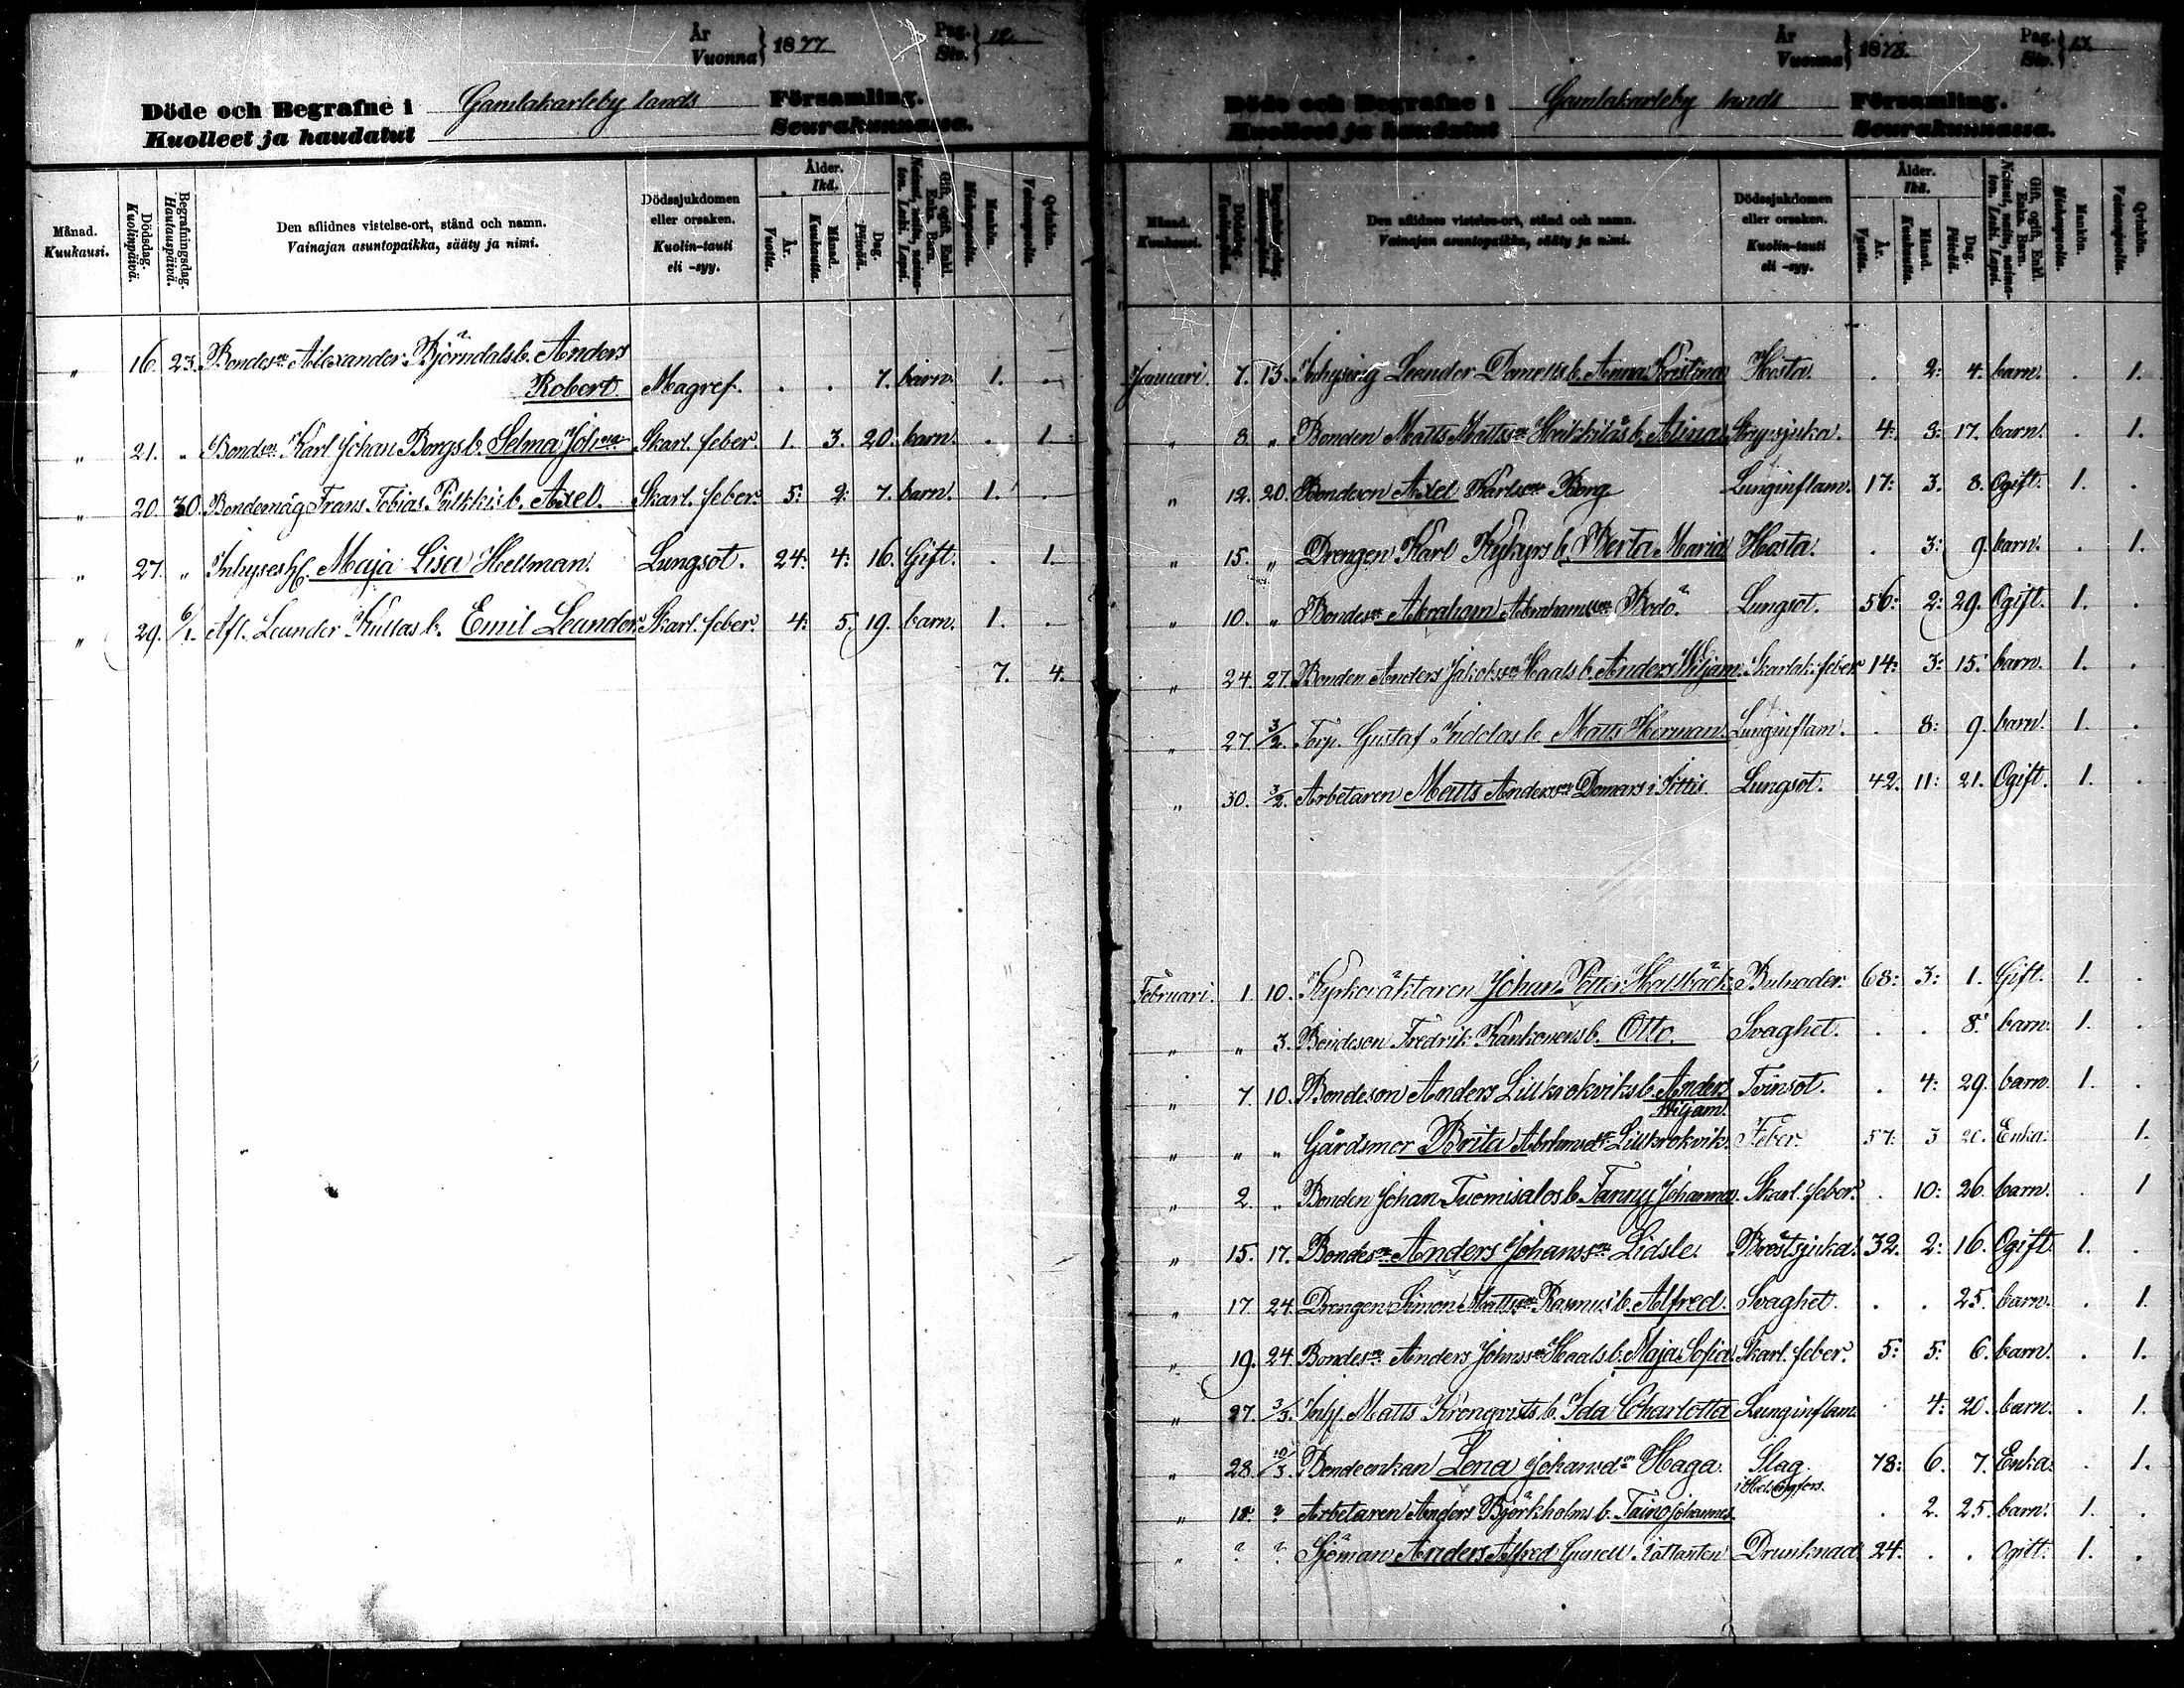 År
Vuonna } 1877
Pag.
Siv. } 12.
Döde och Begrafne i Gamlakarleby lands Församling.
Kuolleet ja haudatut Seurakunnassa.
Månad. Kuukausi.
Dödsdag. Kuolinpäivä.
Begrafningsdag. Hautauspäivä.
Den aflidnes vistelse-ort, stånd och namn.
Vainajan asuntopaikka, sääty ja nimi.
Dödssjukdomen eller orsaken.
Kuolin-tauti eli -syy.
Ålder. Ikä.
År. Vuotta.
Månad. Kuukautta.
Dag. Päivää.
Gift, ogift, Enkl. Enka. Barn.
Mankön. Miehenpuolia.
Qvinkön. Vaimonpuolia.
" 16. 23. Bondes:n Alexander Björndals b. Anders
Robert. Magref. . . 7. barn. 1. .
" 21. " Bondes:n Karl Johan Borgs b. Selma Joh:na Skarl. feber. 1. 3. 20. barn. . 1.
" 20. 30. Bondemåg Frans Tobias Pulkkis b. Axel. Skarl. feber. 5: 2: 7. barn. 1. .
" 27. " Inhyseshf. Maja Lisa Hellman. Lungsot. 24: 4: 16. Gift. . 1.
" 29. 6/1. Afl. Leander Kullas b. Emil Leander. Skarl. feber. 4: 5: 19. barn. 1. .
7. 4.
År
Vuonna } 1878.
Pag.
Siv. } 13.
Döde och Begrafne i Gamlakarleby lands Församling.
Kuolleet ja haudatut Seurakunnassa.
Månad. Kuukausi.
Dödsdag. Kuolinpäivä.
Begrafningsdag. Hautauspäivä.
Den aflidnes vistelse-ort, stånd och namn.
Vainajan asuntopaikka, sääty ja nimi.
Dödssjukdomen eller orsaken.
Kuolin-tauti eli -syy.
Ålder. Ikä.
År. Vuotta.
Månad. Kuukautta.
Dag. Päivää.
Gift, ogift, Enkl. Enka. Barn.
Mankön. Miehenpuolia.
Qvinkön. Vaimonpuolia.
Januari. 7. 13. Leander b. Anna Kristina Hosta. . 2: 4. barn. . 1.
" 8. " Bonden Matts Matts:n Heikkiläs b. Alina Strypsjuka. 4: 3: 17. barn. . 1.
" 12. 20. Bondeson Axel Karls:n Borg Lunginflam. 17: 3. 8. Ogift. 1. .
" 15. " Drengen Karl Kykyrs b. Berta Maria Hosta. . 3: 9. barn. . 1.
" 10. " Bondes:n Abraham Abrahams:n Bodö. Lungsot. 56: 2: 29. Ogift. 1. .
" 24. 27. Bonden Anders Jakobs:n Haals b. Anders Wiljam. Skarlak. feber 14: 3: 15. barn. 1. .
" 27. 3/2. Torp. Gustaf Indolas b. Matts Herman. Lunginflam. . 8: 9. barn. 1. .
" 30. 3/2. Arbetaren Matts Anders:n Domars i Sittis. Lungsot. 42. 11: 21. Ogift. 1. .
Februari. 1. 10. Kyrkoväktaren Johan Petter Hallbäck. Bulnader. 68: 3: 1. Gift. 1. .
" " 3. Bondeson Fredrik Kankonens b. Otto. Svaghet. . . 8. barn. 1. .
" 7. 10. Bondeson Anders Lillkrokviks b. Anders Tvinsot. . 4: 29. barn. 1. .
Wiljam.
" " " Gårdsmor Brita Abrhmsd:r Lillkrokvik. Feber. 57. 3 20. Enka. 1.
" 2. " Bonden Johan Tuomisalos b. Fanny Johanna. Skarl. feber. . 10: 26. barn. . 1
" 15. 17. Bondes:n Anders Johanss:n Lidsle. Bröstsjuka. 32. 2: 16. Ogift. 1. .
" 17 24. Drengen Simon Matts:n Rasmus' b. Alfred. Svaghet. . . 25. barn. . 1.
" 19. 24. Bondes:n Anders Johns:n Haals b. Maja Sofia. Skarl. feber. 5: 5: 6. barn. . 1.
" 27. 3/3. Inh. Matts Kronqvists b. Ida Charlotta Lunginflam. . 4: 20. barn. . 1.
" 28. 10/3. Bondeenkan Lena Johansd:r Haga. Slag. 78: 6. 7. Enka. . 1.
i Helsingfors.
" 18. ? Arbetaren Anders Björkholms b. Taino Johannes. . 2. 25. barn. 1. .
" ? ? Sjöman Anders Alfred Gunell Drunknad 24. . . Ogift. 1. .